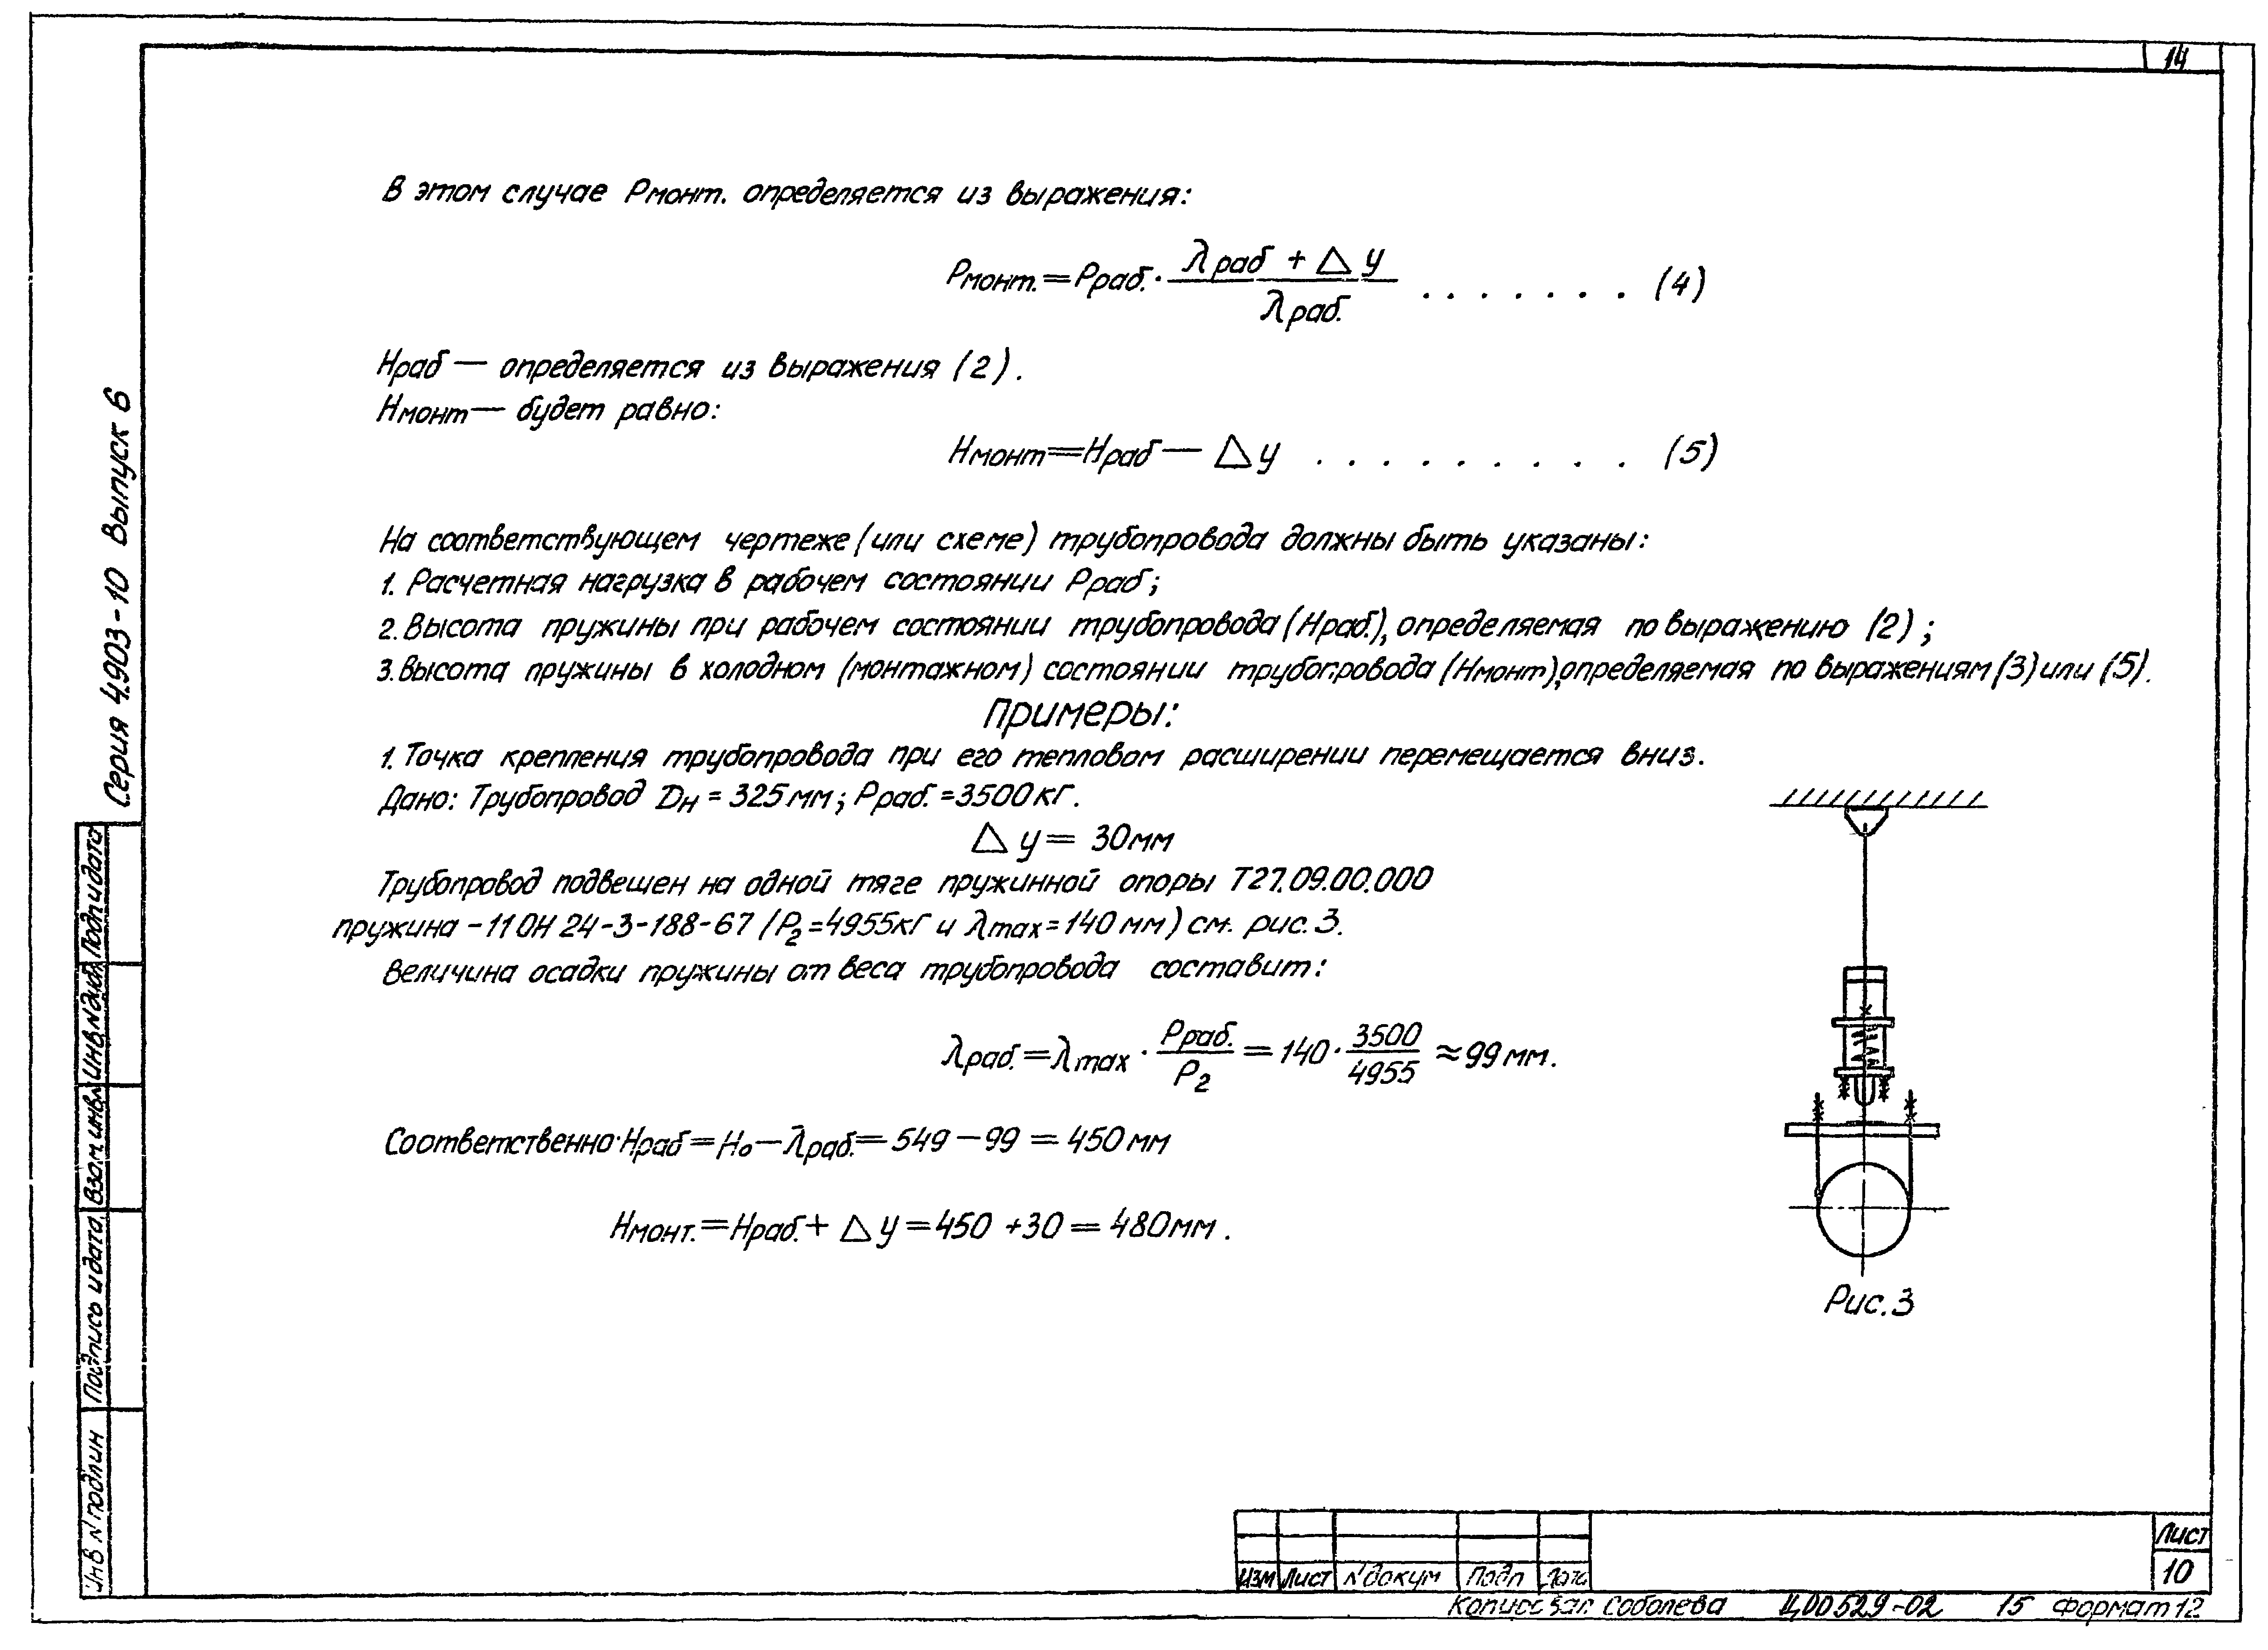 14
В этом случае Рмонт. определяется из выражения:
Рмонт. = Рраб. · (λраб + Δу) / λраб. . . . . . . . (4)
Нраб — определяется из выражения (2).
Нмонт — будет равно:
Нмонт = Нраб — Δу . . . . . . . . . . (5)
На соответствующем чертеже (или схеме) трубопровода должны быть указаны:
1. Расчетная нагрузка в рабочем состоянии Рраб;
2. Высота пружины при рабочем состоянии трубопровода (Нраб.), определяемая по выражению (2);
3. Высота пружины в холодном (монтажном) состоянии трубопровода (Нмонт), определяемая по выражениям (3) или (5).
Примеры:
1. Точка крепления трубопровода при его тепловом расширении перемещается вниз.
Дано: Трубопровод Dн = 325 мм; Рраб. = 3500 кг.
Δу = 30 мм
Трубопровод подвешен на одной тяге пружинной опоры Т27.09.00.000
пружина - 11 ОН 24-3-188-67 (Р2 = 4955 кг и λmax = 140 мм) см. рис. 3.
Величина осадки пружины от веса трубопровода составит:
λраб. = λmax · Рраб. / Р2 = 140 · 3500 / 4955 ≈ 99 мм.
Соответственно: Нраб = Но — λраб. = 549 — 99 = 450 мм
Нмонт. = Нраб. + Δу = 450 + 30 = 480 мм.
Рис. 3
Серия 4.903-10 Выпуск 6
Подп и дата
Инв. N дубл
Взам инв. N
Подпись и дата
Инв N подлин
Изм Лист N докум Подп Дата
Лист
10
Копировал Соболева Ц00529-02 15 Формат 12